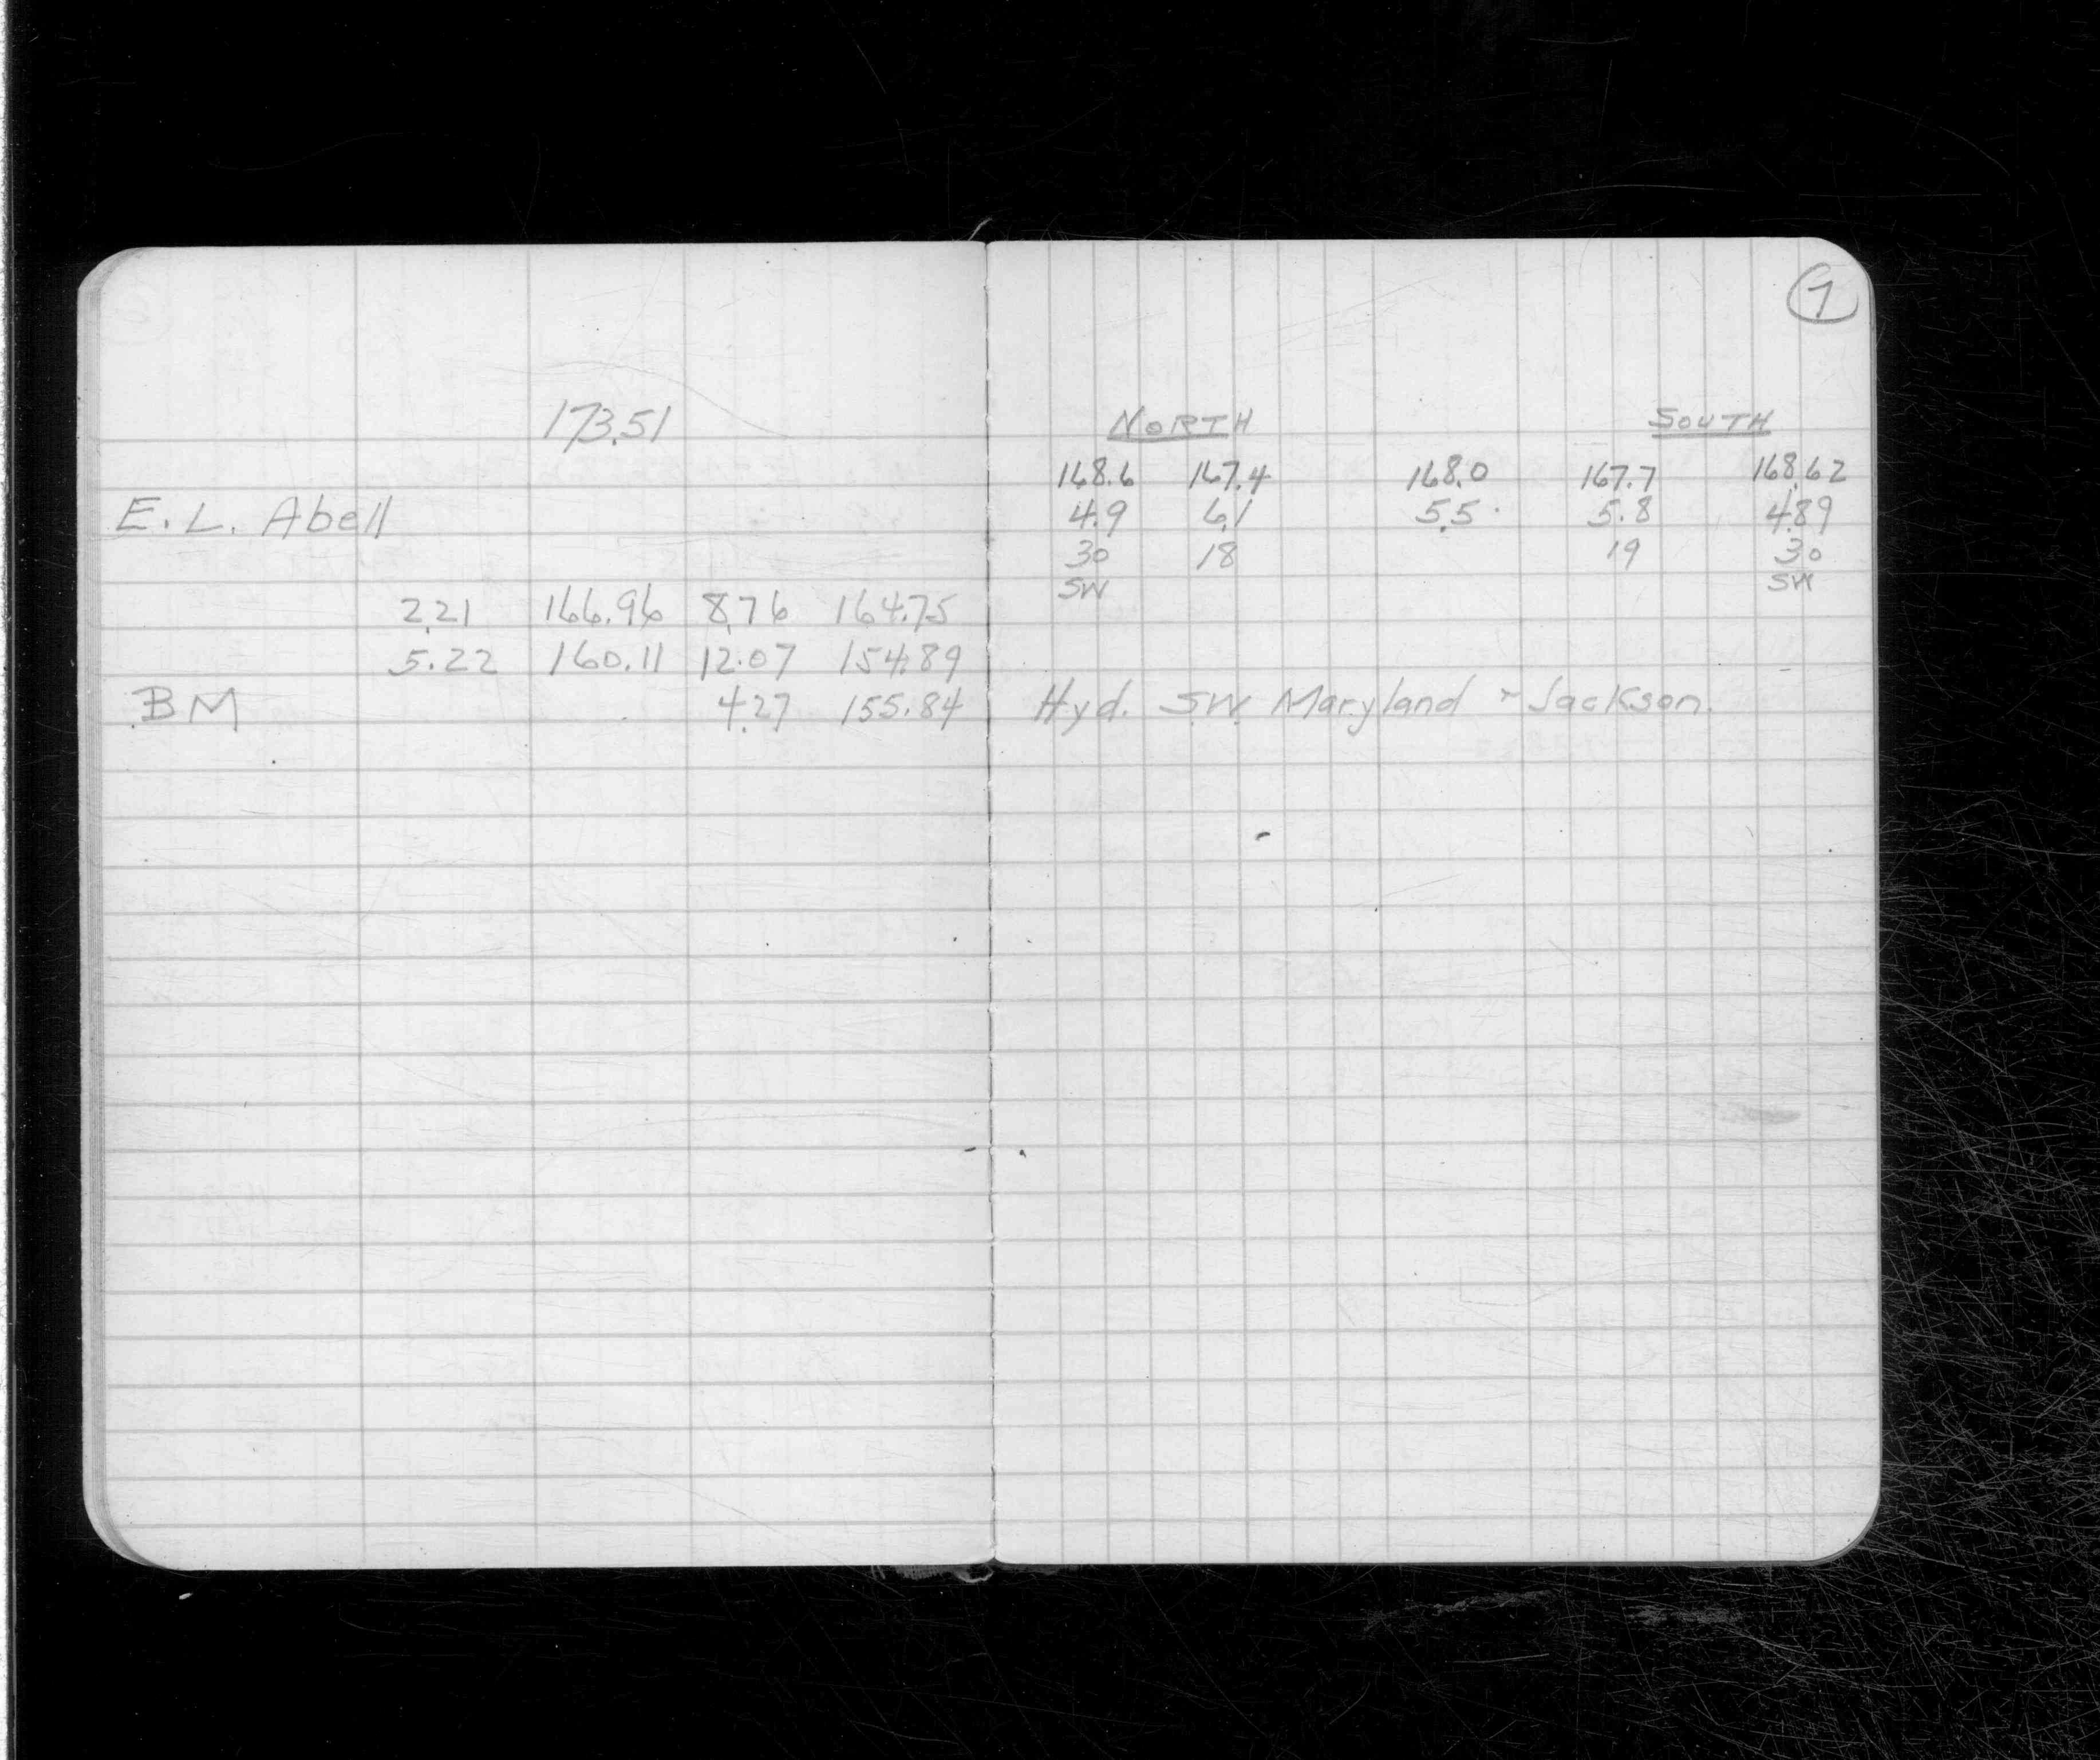 7
173.51
NORTH SOUTH
168.6 167.4 168.0 167.7 168.62
E. L. Abell 4.9 6.1 5.5 5.8 4.89
30 18 19 30
SW SW
2.21 166.96 8.76 164.75
5.22 160.11 12.07 154.89
BM 4.27 155.84 Hyd. SW Maryland + Jackson.